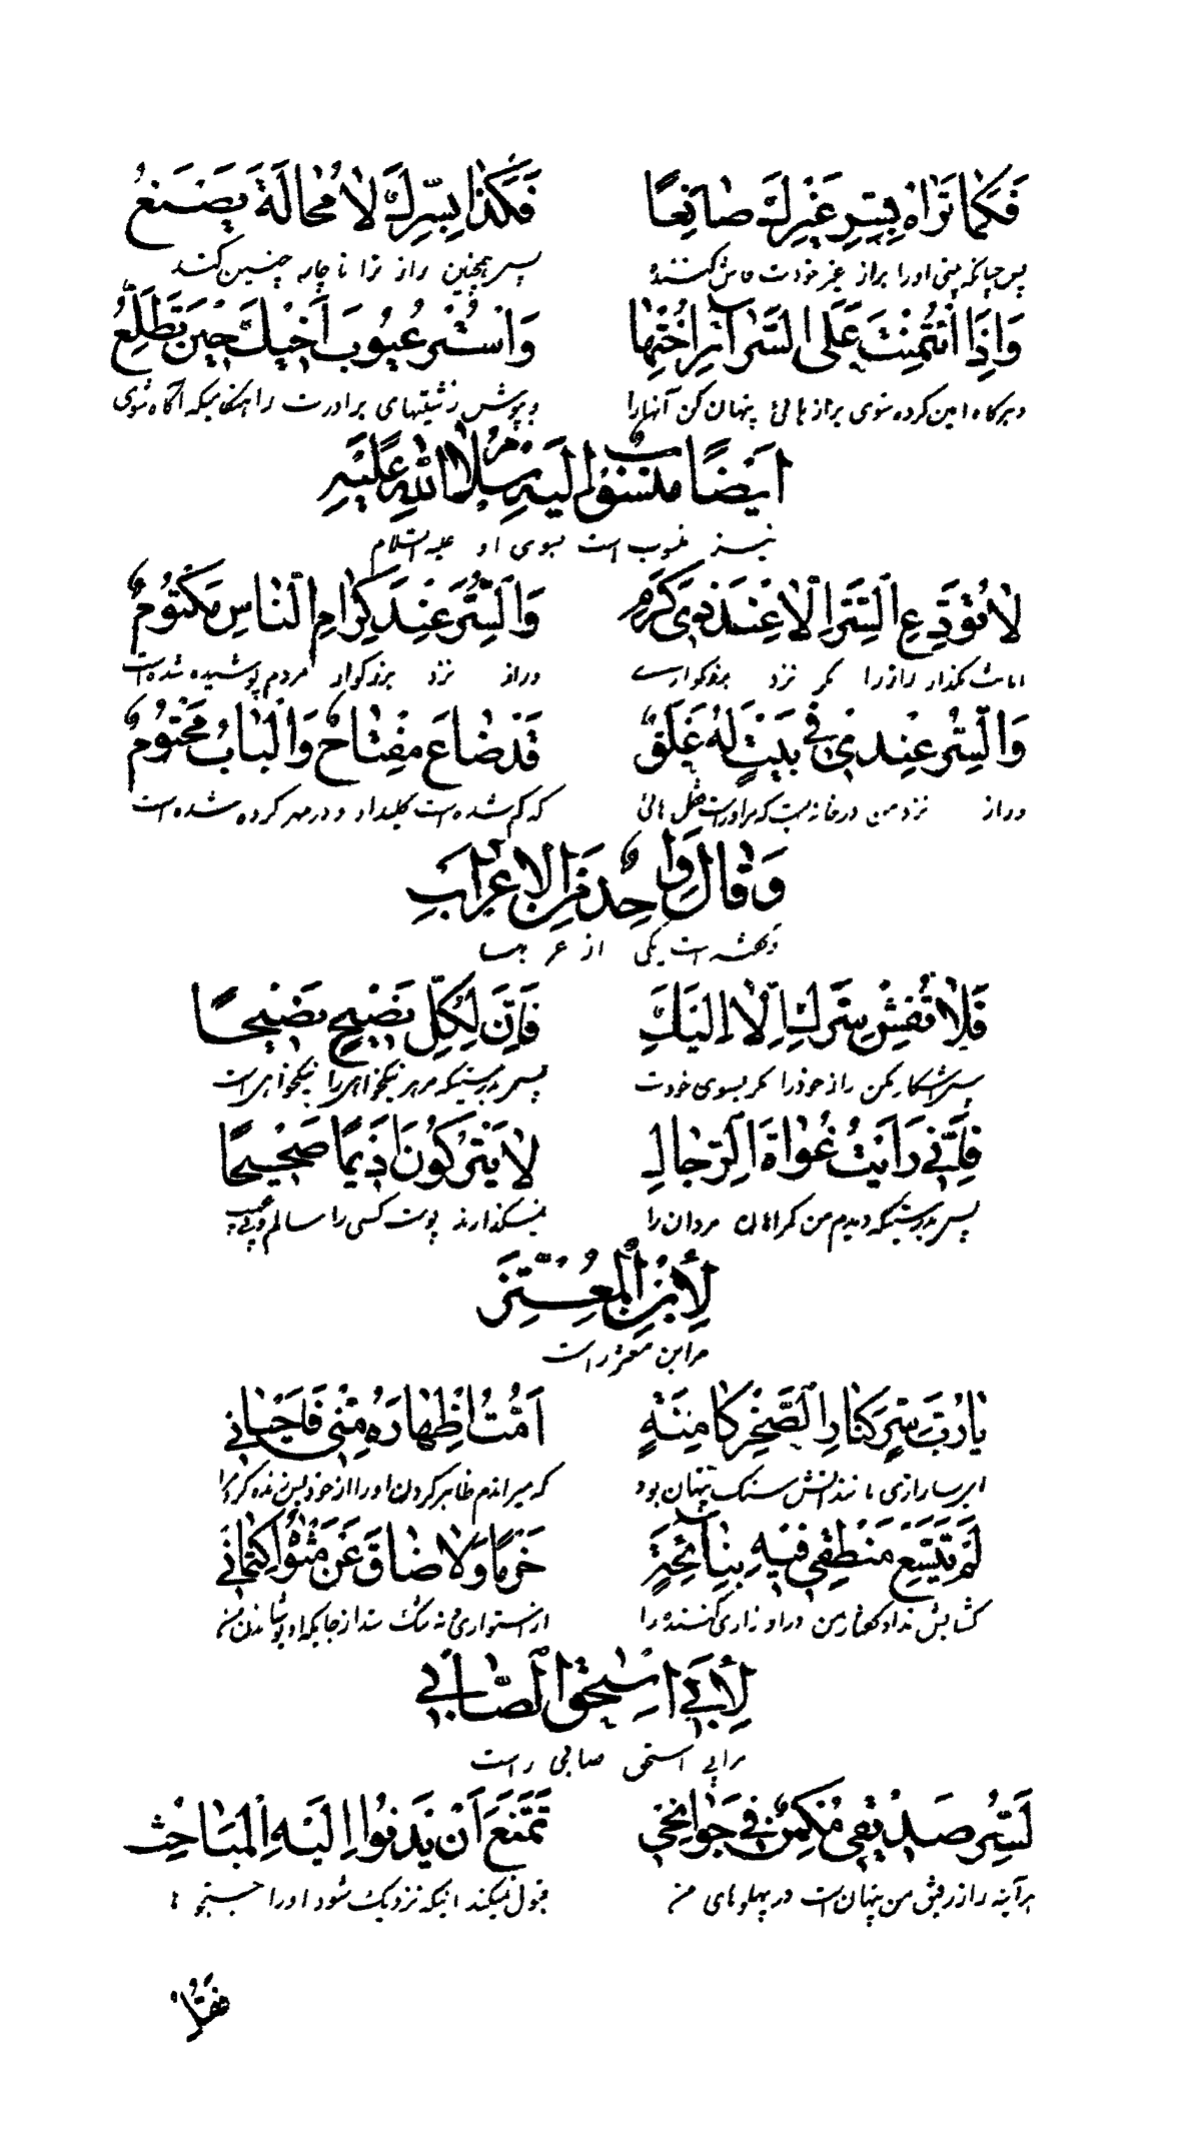 فَكَمَا تَرَاهُ بِسِرِّ غَيْرِكَ صَانِعًا فَكَذَا بِسِرِّكَ لَا مُحَالَةَ يَصْنَعُ
پس چنانکه بینی اورا براز غیر خودت فاش کننده پس همچنین راز ترا ناچار چنین کند
وَإِذَا ائْتُمِنْتَ عَلَى السَّرَائِرِ اخْفِهَا وَاسْتُرْ عُيُوبَ أَخِيكَ حِينَ تَطَّلِعُ
و هرگاه امین کرده شوی براز هائی پنهان کن آنهارا و بپوش زشتیهای برادرت را هنگامیکه آگاه شوی
أَيْضًا مَنْسُوبٌ إِلَيْهِ سَلَامُ اللهِ عَلَيْهِ
نیز منسوب است بسوی او علیه السلام
لَا تُودِعِ السِّرَّ إِلَّا عِنْدَ ذِي كَرَمٍ وَالسِّرُّ عِنْدَ كِرَامِ النَّاسِ مَكْتُومٌ
امانت مگذار رازرا مگر نزد بزرگوارے وراز نزد بزرگوار مردم پوشیده شده است
وَالسِّرُّ عِنْدِي فِي بَيْتٍ لَهُ غَلَقٌ قَدْ ضَاعَ مِفْتَاحُهُ وَالْبَابُ مَخْتُومٌ
وراز نزد من در خانه ایست که مر اوراست قفل هائی که گم شده است کلید او و در مهر کرده شده است
وَقَالَ وَاحِدٌ مِنَ الْأَعْرَابِ
و گفته است یکی از عربها
فَلَا تُفْشِ سِرَّكَ إِلَّا إِلَيْكَ فَإِنَّ لِكُلِّ نَصِيحٍ نَصِيحًا
پس آشکار مکن راز خودرا مگر بسوی خودت پس بدرستیکه مر هر نیکخواهی را نیکخواهی است
فَإِنِّي رَأَيْتُ غُوَاةَ الرِّجَالِ لَا يَتْرُكُونَ أَدِيمًا صَحِيحًا
پس بدرستیکه دیدم من گمراهان مردان را نمیگذارند پوست کسی را سالم و بی عیب
لِابْنِ الْمُعْتَزِّ
مر ابن معتز راست
يَا رُبَّ سِرٍّ كَنَارِ الصَّخْرِ كَامِنَةٍ أَمَتُّ إِظْهَارَهُ مِنِّي فَأَحْيَانِي
ای بسا رازی مانند آتش سنگ پنهان بود که میراندم ظاهر کردن اورا از خود پس زنده کرد مرا
لَمْ يَتَّسِعْ مَنْطِقِي فِيهِ بِبَائِحَةٍ حَزْمًا وَلَا ضَاقَ عَنْ مَثْوَاهُ كِتْمَانِي
گشایش نداد گفتار من در او زاری کننده را از استواری و نه تنگ شد از جایگاه او
لِأَبِي إِسْحَقَ الصَّابِي
مر ابی اسحق صابی راست
لَسِرُّ صَدِيقِي مُكْمَنٌ فِي جَوَانِحِي تَمَنَّعَ أَنْ يَدْنُو إِلَيْهِ الْمَبَاحِثُ
هر آینه راز رفیق من پنهان است در پهلوهای من قبول نمیکند اینکه نزدیک شود اورا جستجو ها